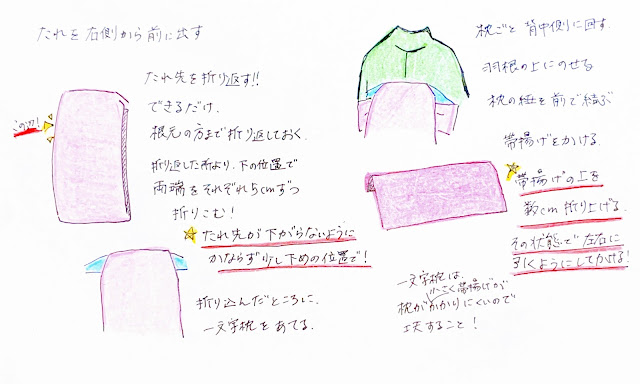 たれを右側から前に出す
この辺!
たれ先を折り返す!!
できるだけ、
根元の方まで折り返しておく.
折り返した所より、下の位置で
両端をそれぞれ5cmずつ
折りこむ!
たれ先が下がらないように
かならず少し下めの位置で!
折り込んだところに、
一文字枕をあてる.
枕ごと背中側に回す.
羽根の上にのせる
枕の紐を前で結ぶ
帯揚げをかける.
帯揚げの上を
数cm折り上げる.
その状態で左右に
引くようにしてかける!
一文字枕は、
小さく帯揚げが
枕がかかりにくいので
工夫すること!